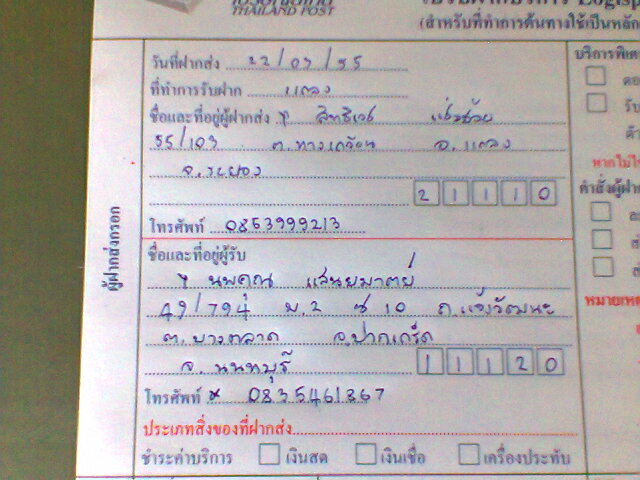 THAILAND POST
(สำหรับที่ทำการต้นทางใช้เป็นหลัก
วันที่ฝากส่ง 22/03/55
ที่ทำการรับฝาก แกลง
ชื่อและที่อยู่ผู้ฝากส่ง
55/103 ต.ทางเกวียน อ.แกลง
จ.ระยอง
21110
โทรศัพท์ 0863999213
ชื่อและที่อยู่ผู้รับ
นพคุณ แสนยมาตย์
49/794 ม.2 ซ 10 ถ.แจ้งวัฒนะ
ต.บางตลาด อ.ปากเกร็ด
จ.นนทบุรี 11120
โทรศัพท์ 0835461367
ประเภทสิ่งของที่ฝากส่ง
ชำระค่าบริการ เงินสด เงินเชื่อ เครื่องประทับ
ผู้ฝากส่งกรอก
บริการพิเศ
ตอ
รับ
หากไม่ใ
คำสั่งผู้ฝาก
หมายเหต